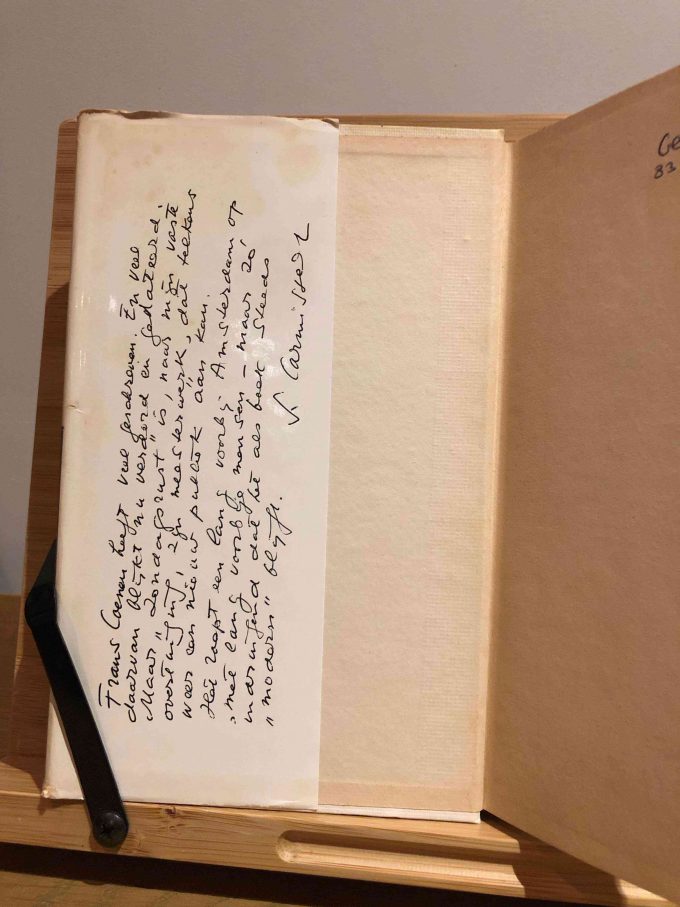 Frans Coenen heeft veel geschreven. En veel
daarvan blijkt nu verdord en gedateerd.
Maar „Zondagsrust” is, naar mijn vaste
overtuiging, zijn meesterwerk, dat telkens
weer een nieuw publiek aan kan.
Het roept een lang voorbij Amsterdam op
met lang voorbije mensen – maar zó
indringend dat het als boek steeds
„modern” blijft.
S. Carmiggelt
Ge
83